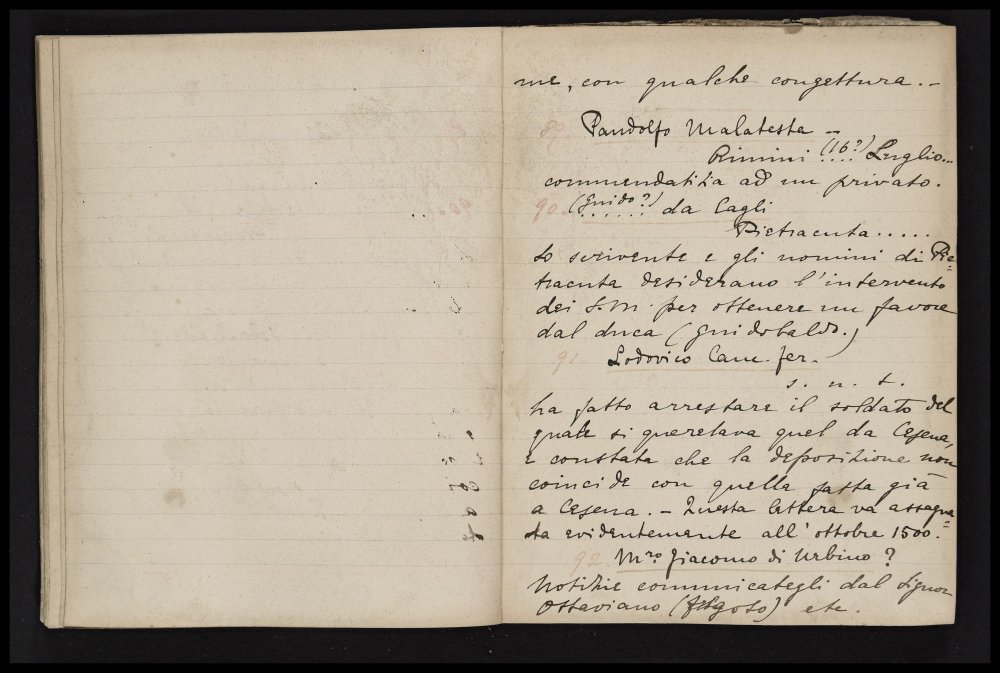 me, con qualche congettura. –
89
Pandolfo Malatesta –
Rimini (16?) Luglio...
commendatizia ad un privato.
90. (Guido?) da Cagli
Pietracuta.....
Lo scrivente e gli uomini di Pie=
tracuta desiderano l'intervento
dei S.M. per ottenere un favore
dal duca (Guidobaldo.)
91. Lodovico Canc. fer.
s. n. t.
ha fatto arrestare il soldato del
quale si querelava quel da Cesena,
e constata che la deposizione non
coincide con quella fatta già
a Cesena. – Questa lettera va assegna=
ta evidentemente all'ottobre 1500.
92. Mro. Giacomo di Urbino?
Notizie communicategli dal signor
Ottaviano (Fregoso) etc.